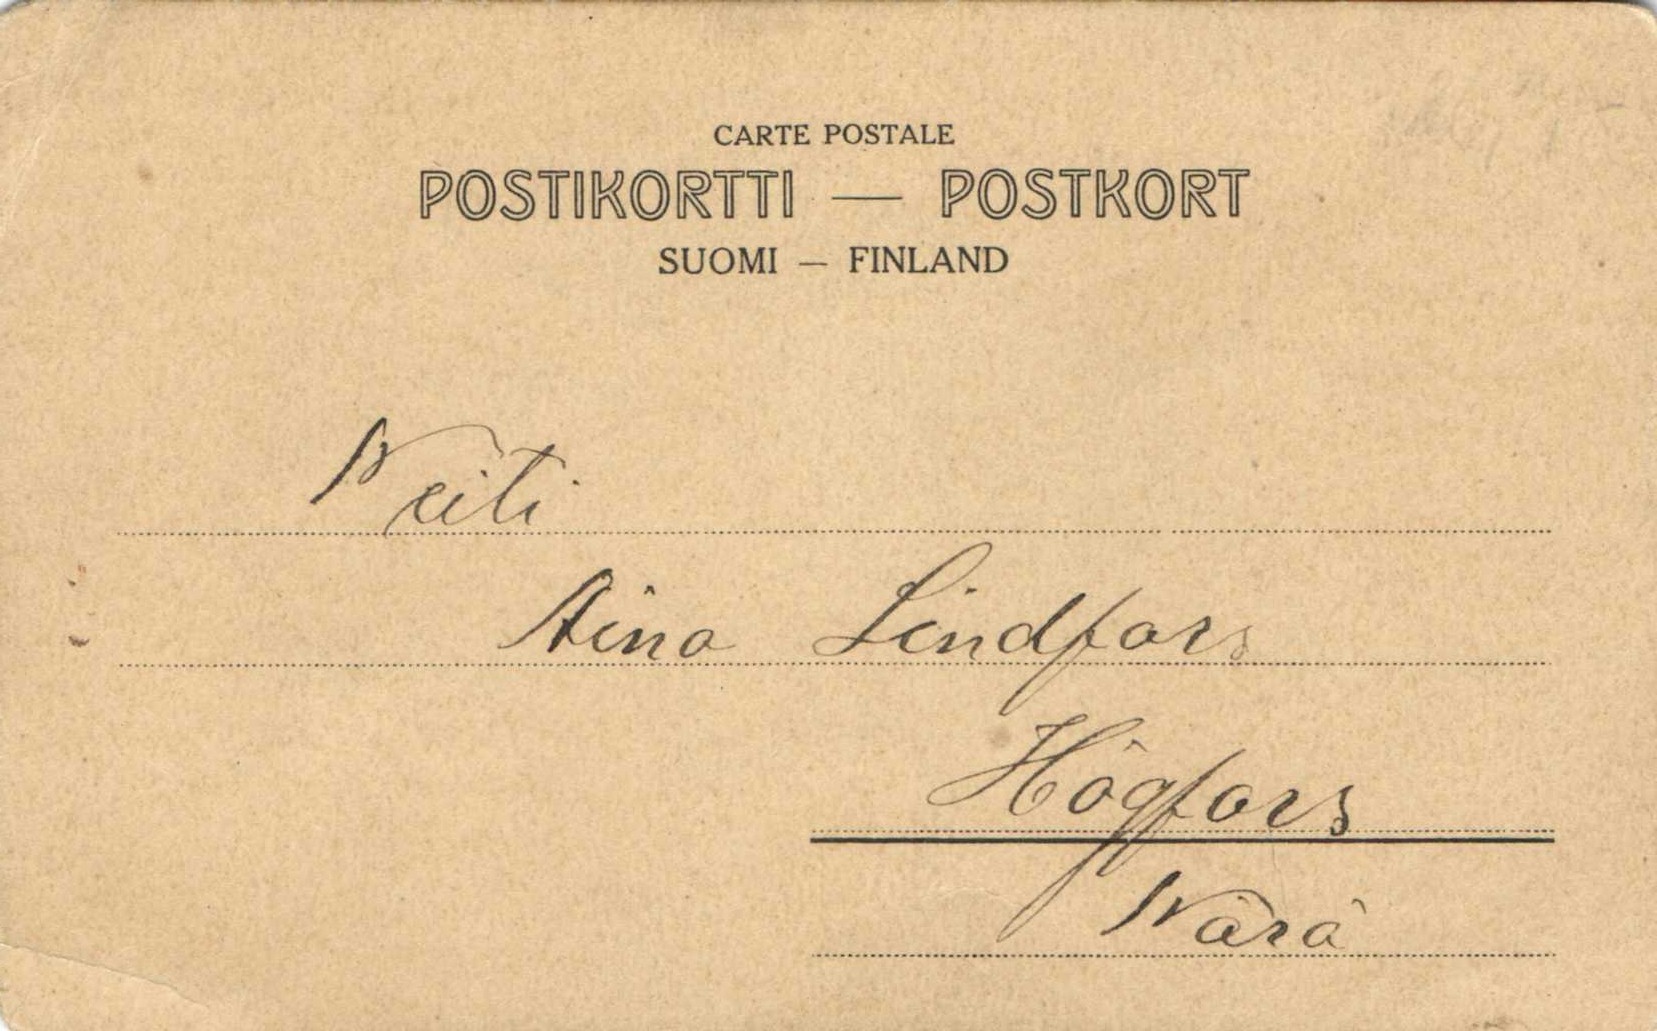 CARTE POSTALE
POSTIKORTTI — POSTKORT
SUOMI — FINLAND
Neiti
Aina Lindfors
Högfors
Närä